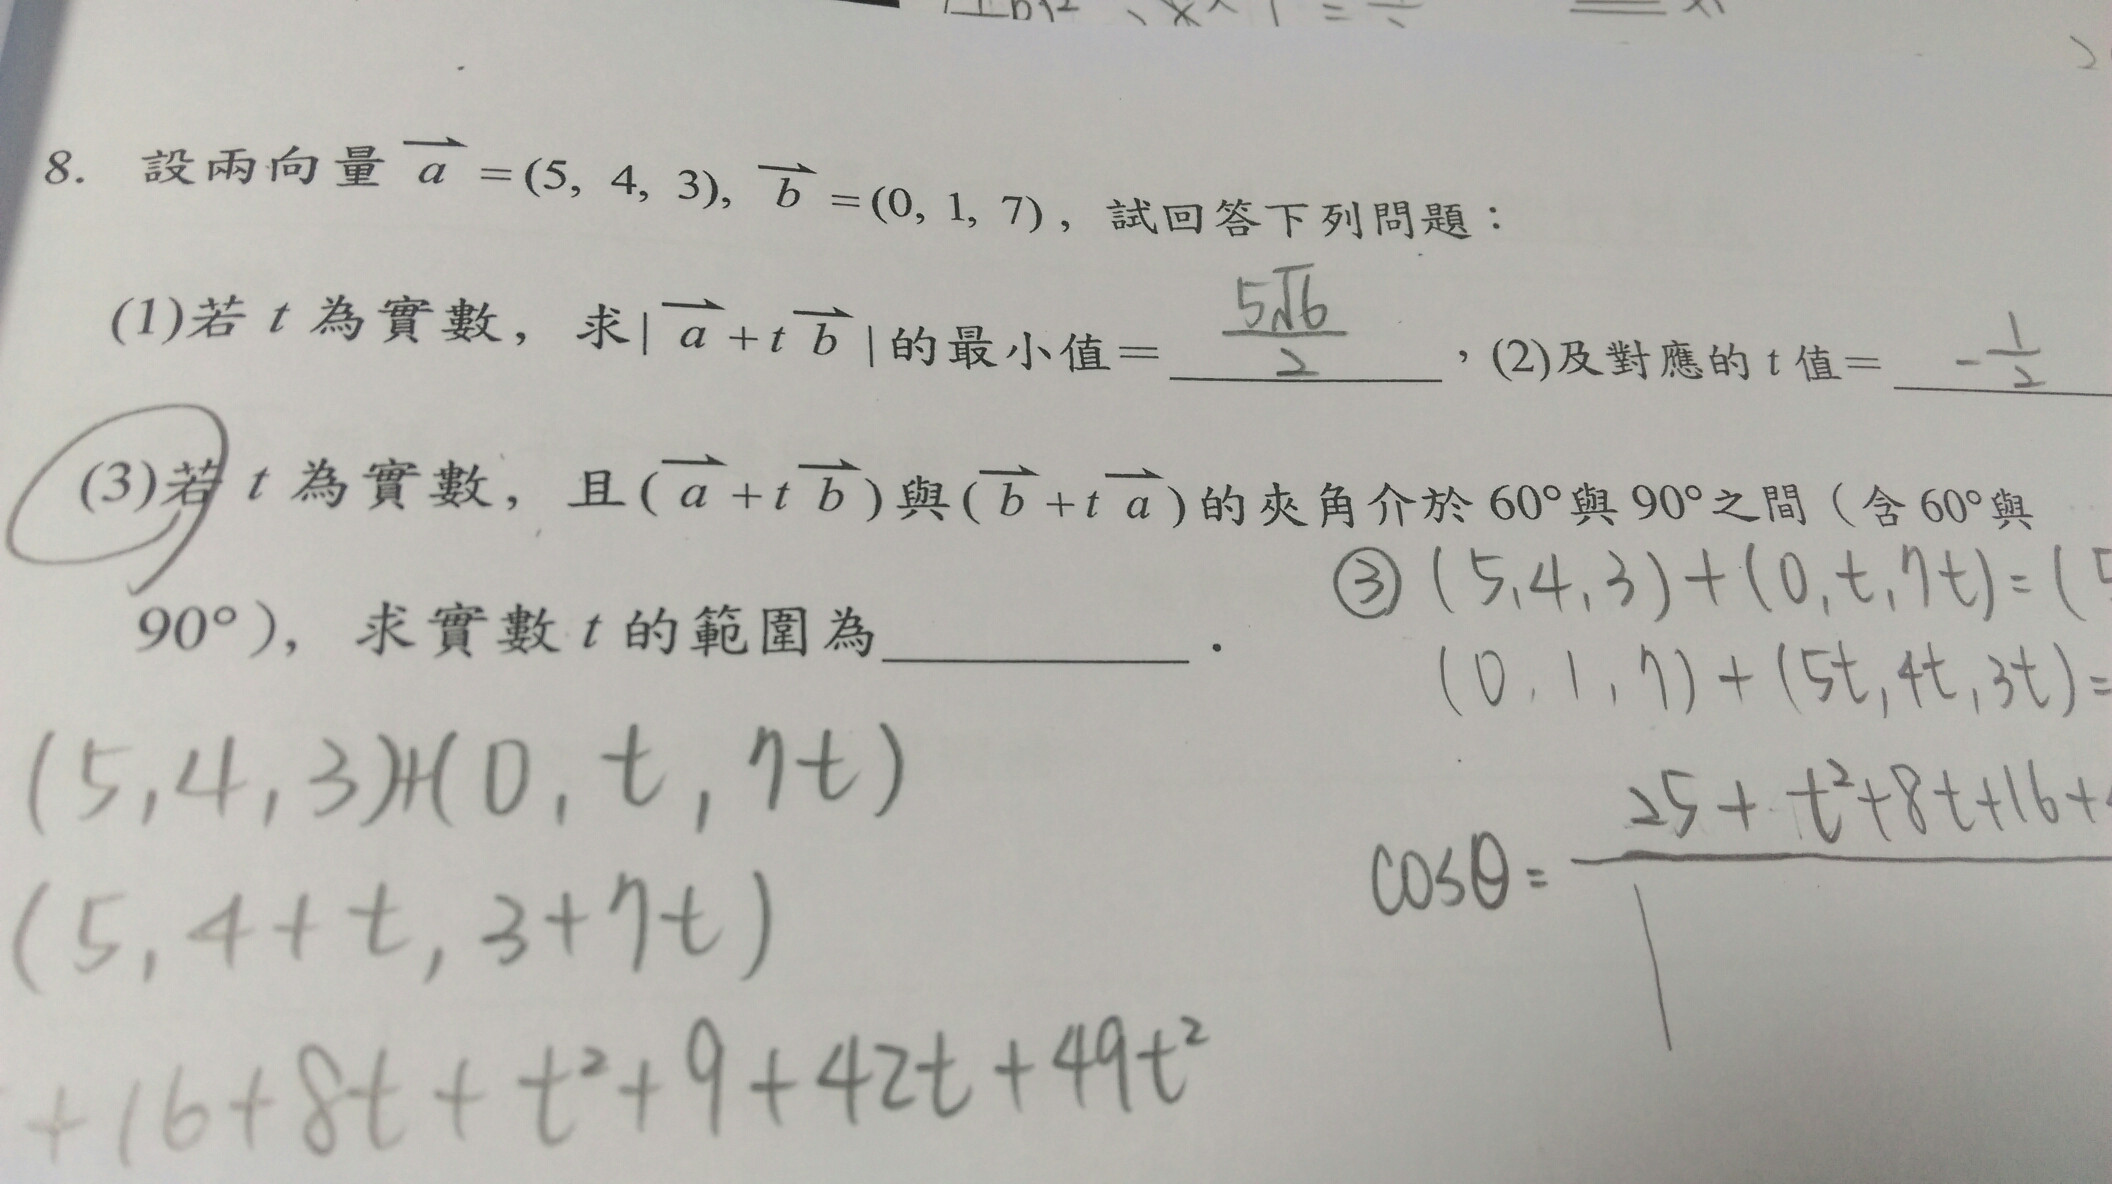 8. 設兩向量 a⃗ =(5, 4, 3), b⃗ =(0, 1, 7)，試回答下列問題：
(1)若 t 為實數，求| a⃗ +t b⃗ |的最小值= 5√6/2，(2)及對應的 t 值= -1/2
(3)若 t 為實數，且( a⃗ +t b⃗ )與( b⃗ +t a⃗ )的夾角介於 60°與 90°之間（含 60°與
90°），求實數 t 的範圍為________．
③ (5,4,3)+(0,t,7t)=(5
(0,1,7)+(5t,4t,3t)=
cosθ= 25+t²+8t+16+
(5,4,3)+(0,t,7t)
(5,4+t,3+7t)
+16+8t+t²+9+42t+49t²